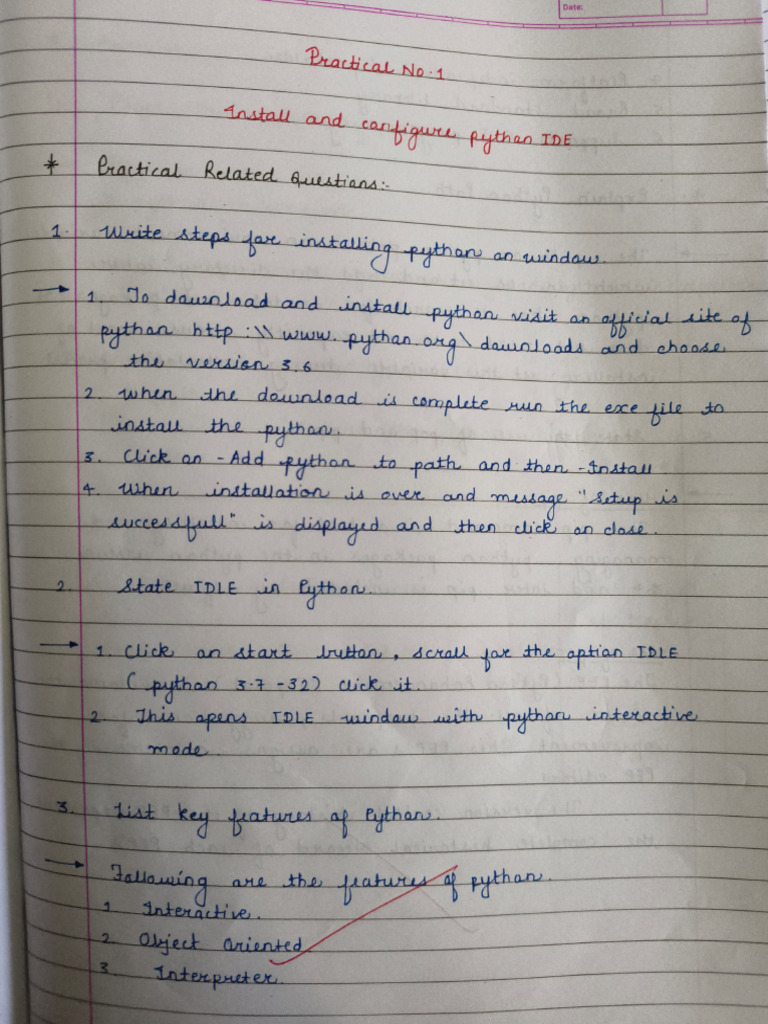 Date:
Practical No.1
Install and configure python IDE
* Practical Related Questions:-
1. Write steps for installing python on window.
→ 1. To download and install python visit an official site of
python http :\\ www. python.org\ downloads and choose
the version 3.6
2. When the download is complete run the exe file to
install the python.
3. Click on -Add python to path and then -Install
4. When installation is over and message "Setup is
successfull" is displayed and then click on close.
2. State IDLE in Python.
→ 1. Click on start button, scroll for the option IDLE
( python 3.7 -32) click it.
2. This opens IDLE window with python interactive
mode.
3. List key features of Python.
→ Following are the features of python.
1 Interactive.
2 Object oriented
3. Interpreter.